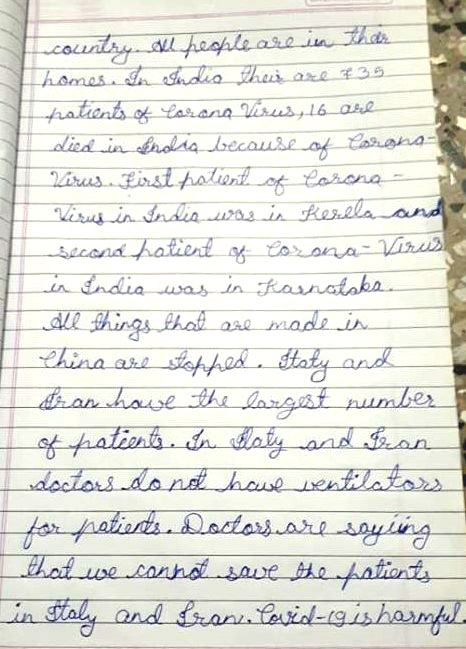 country. All people are in their
homes. In India their are 735
patients of Corona Virus, 16 are
died in India because of Corona-
Virus. First patient of Corona-
Virus in India was in Kerela and
second patient of Corona-Virus
in India was in Karnataka.
All things that are made in
China are stopped. Italy and
Iran have the largest number
of patients. In Italy and Iran
doctors do not have ventilators
for patients. Doctors are sayiing
that we cannot save the patients
in Italy and Iran. Covid-19 is harmful.